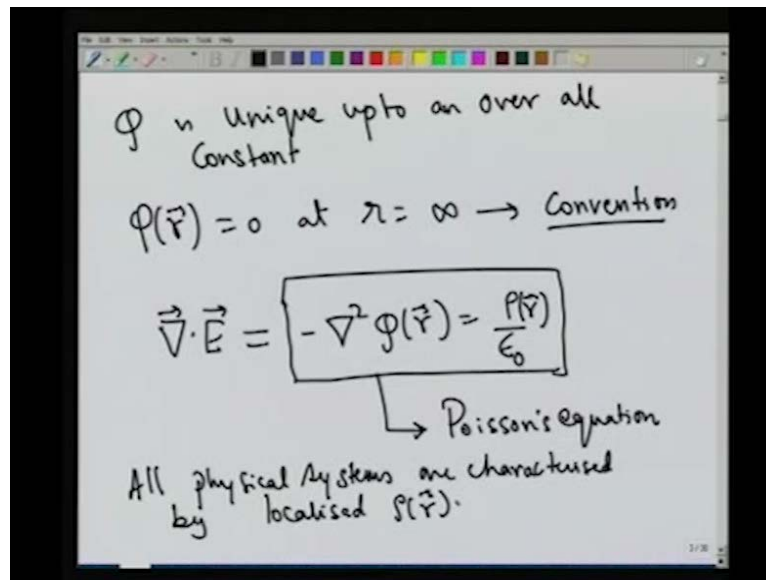 File Edit View Insert Actions Tools Help
φ is Unique upto an over all
Constant
φ(r⃗) = 0 at r = ∞ → Convention
∇⃗·E⃗ = - ∇² φ(r⃗) = ρ(r⃗)/ε₀
→ Poisson's equation
All physical systems are characterised
by localised ρ(r⃗).